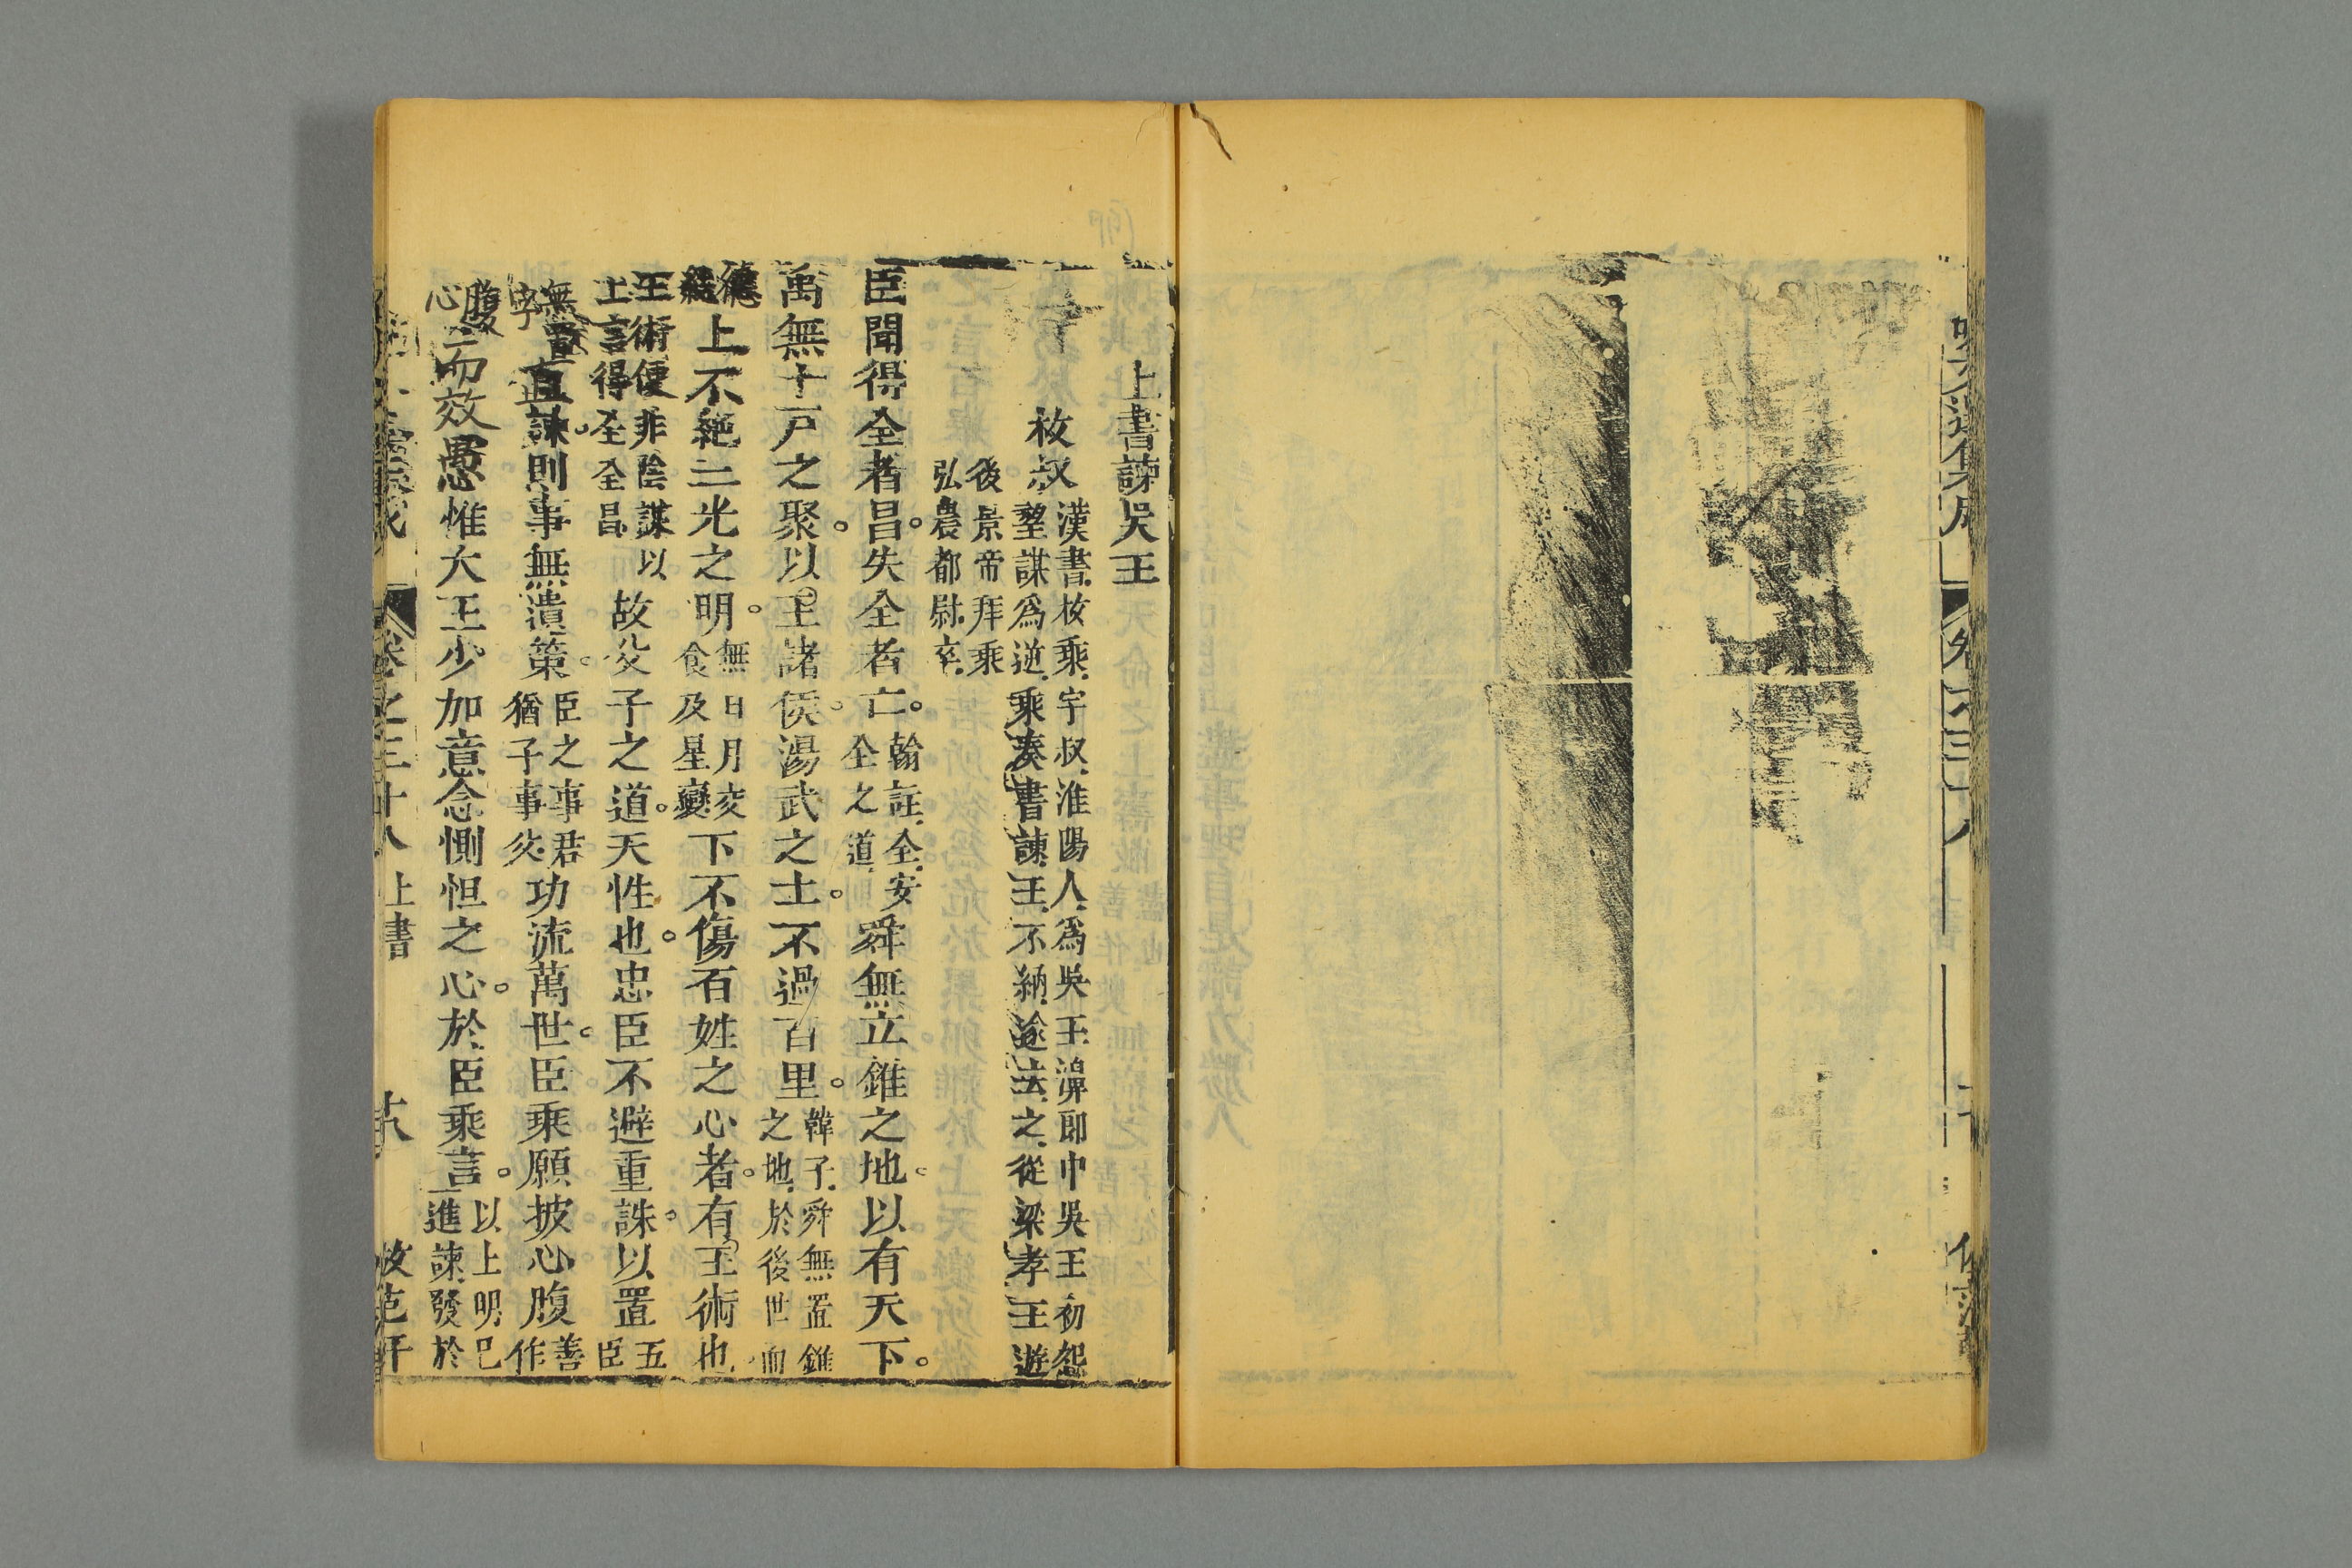 上書諫吳王
枚叔
漢書枚乘字叔淮陽人爲吳王濞郎中吳王初怨
望謀爲逆乘奏書諫王不納遂去之從梁孝王遊
後景帝拜乘
弘農都尉卒
臣聞得全者昌失全者亡
翰註全安
全之道
舜無立錐之地以有天下
禹無十戶之聚以王諸侯湯武之士不過百里
韓子舜無置錐
之地於後世而
德
上不絕三光之明
無日月交
食及星變
下不傷百姓之心者有王術也
王術便非陰謀以
上言得全全昌
故父子之道天性也忠臣不避重誅以
置
五
臣
無
字
直諫則事無潰策
臣之事君
猶子事父
功流萬世臣乘願披心腹
善
作
腹
心
而效愚惟大王少加意念惻怛之心於臣乘言
以上明已
進諫發於
卷之三十八 上書